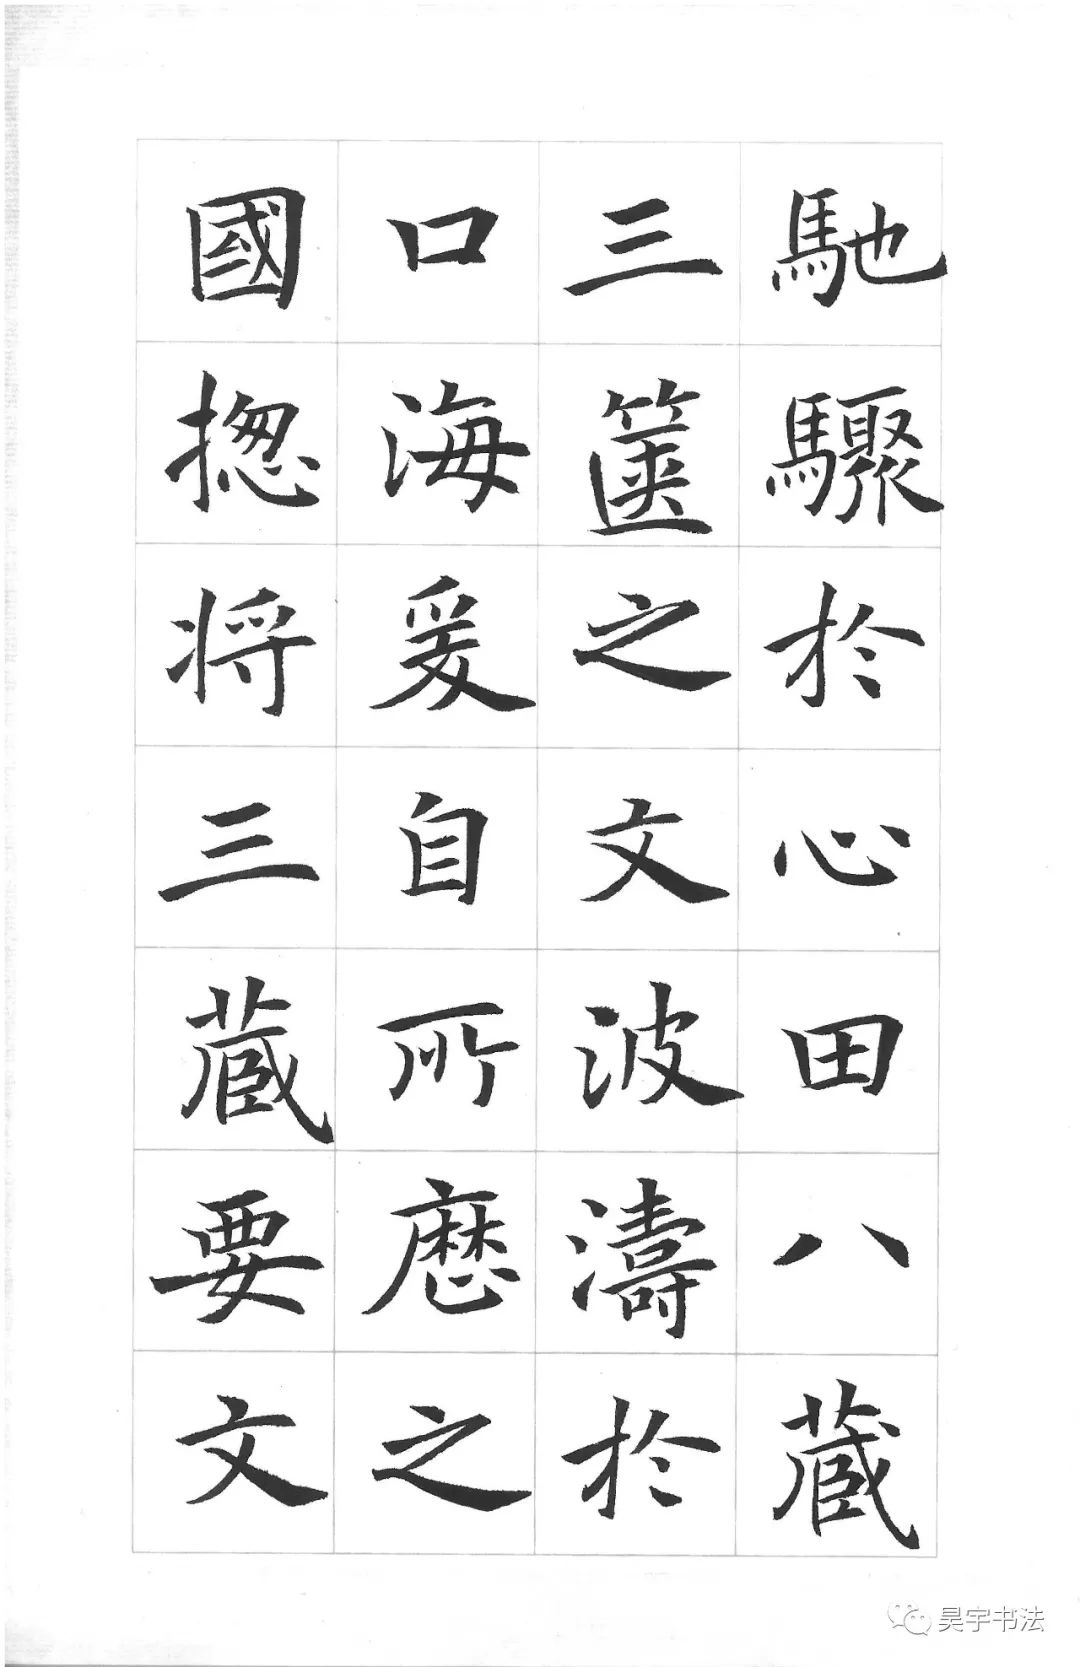 馳驟於心田八蔵
三篋之文波濤於
口海爰自所歷之
國揔将三蔵要文
昊宇书法